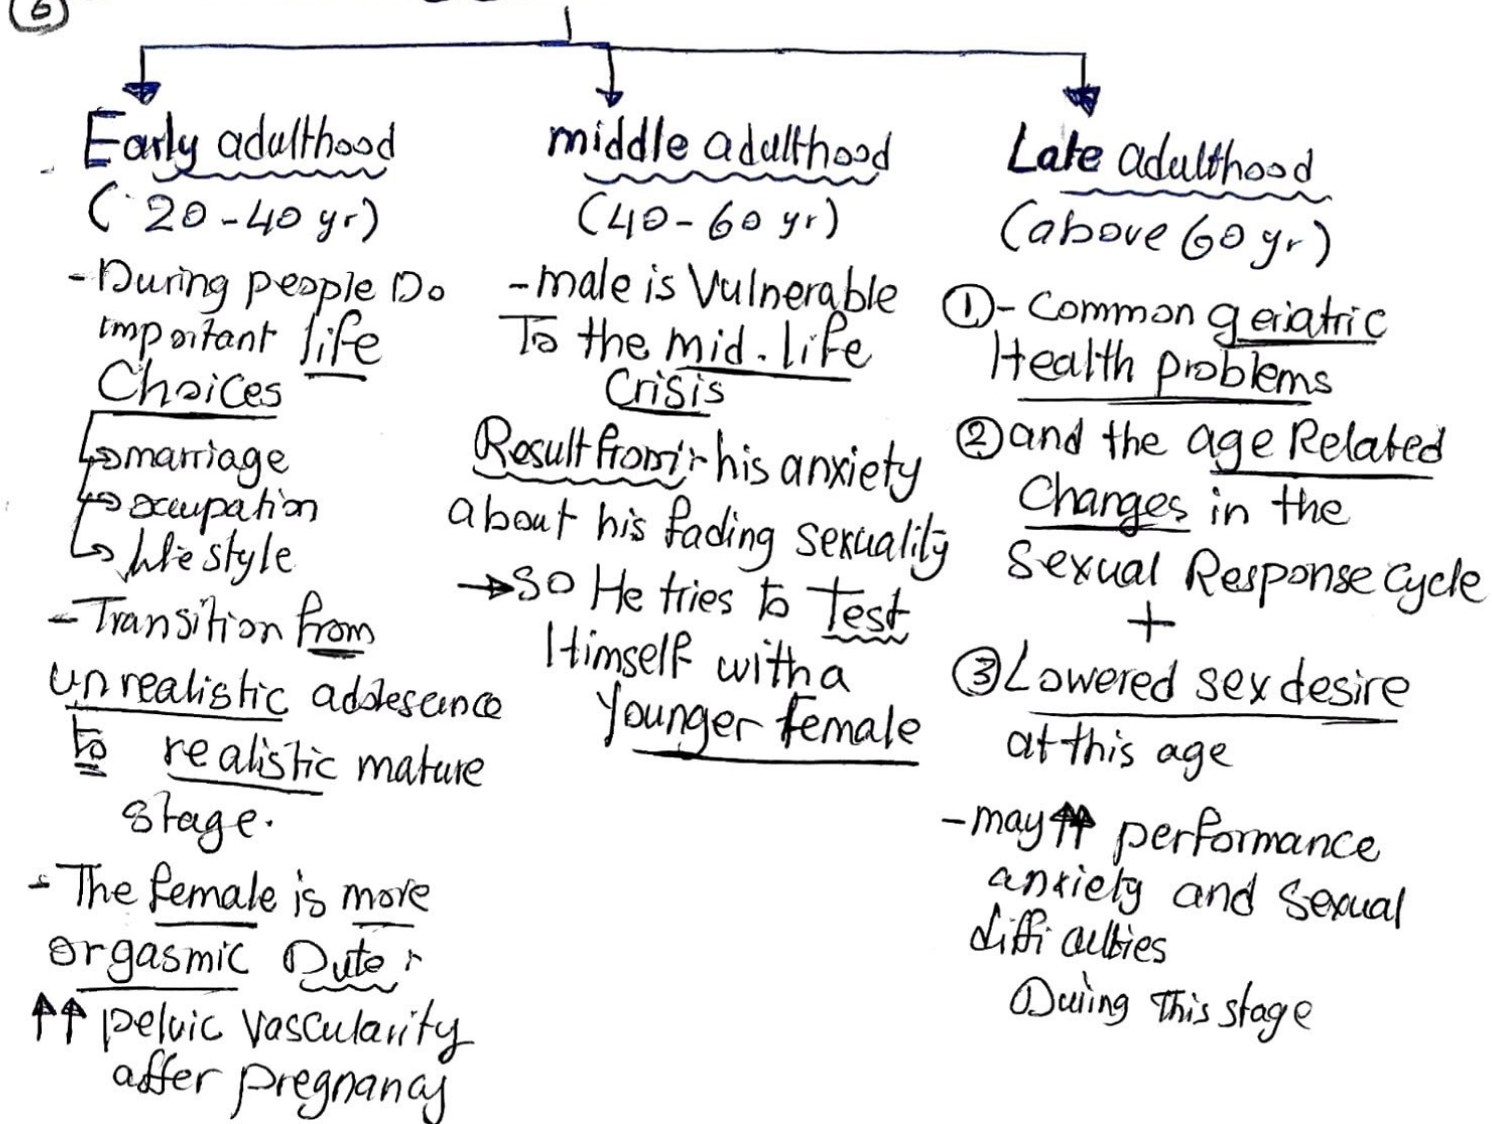 6
Early adulthood
(20-40 yr)
-During people Do
important life
Choices
→marriage
→occupation
→life style
-Transition from
unrealistic adolesence
to realistic mature
stage.
-The female is more
orgasmic Dute:
↑↑ pelvic vascularity
affer pregnancy
middle adulthood
(40-60 yr)
-male is Vulnerable
To the mid.life
Crisis
Result from:- his anxiety
about his fading sexuality
→SO He tries to Test
Himself with a
Younger female
Late adulthood
(above 60 yr)
①- Common geriatric
Health problems
②and the age Related
Changes in the
Sexual Response cycle
+
③Lowered sex desire
at this age
-may ↑↑ performance
anxiety and Sexual
difficulties
During This stage